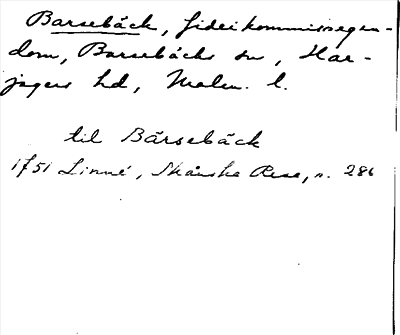 Barsebäck, fideikommissegen-
dom, Barsebäcks sn, Har-
jagers hd, Malm. l.
til Bärsebäck
1751 Linné, Skånska Resa, s. 286